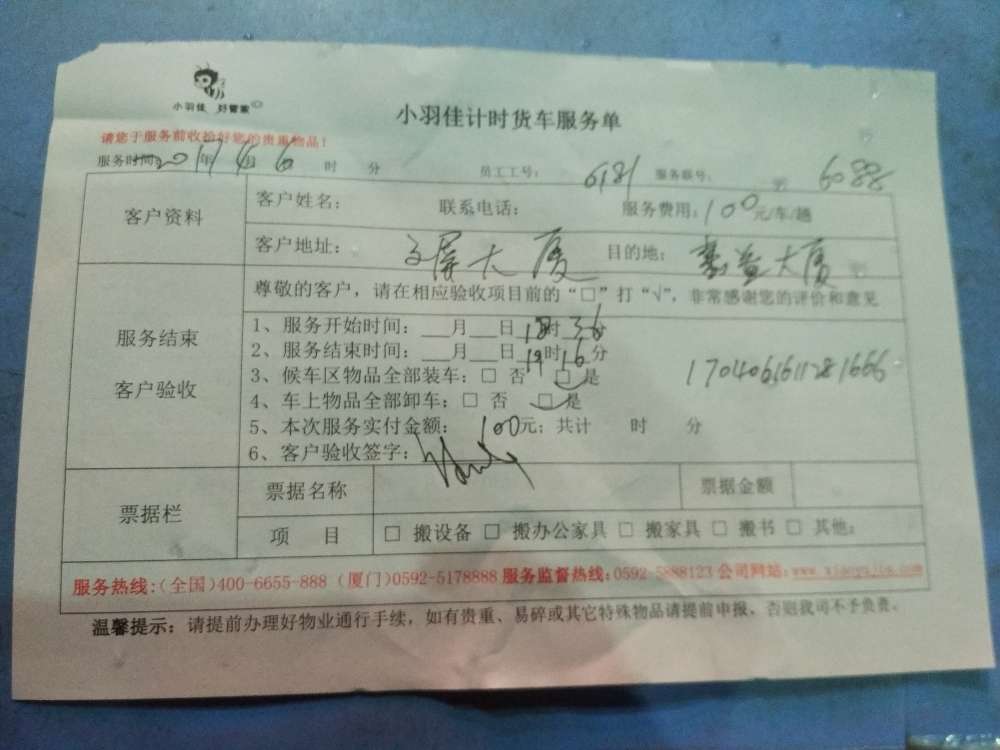 小羽佳 好管家
小羽佳计时货车服务单
请您于服务前收拾好您的贵重物品!
服务时间: 2017年4月6 时 分 员工工号: 6181 服务联号: 6088
客户资料
客户姓名: 联系电话: 服务费用: 100元/车/趟
客户地址: 文屏大厦 目的地: 大厦
服务结束
客户验收
尊敬的客户,请在相应验收项目前的“□”打“√”,非常感谢您的评价和意见
1、服务开始时间: ___月___日 18时36分
2、服务结束时间: ___月___日 19时16分
3、候车区物品全部装车: □ 否 □ 是
4、车上物品全部卸车: □ 否 □ 是
5、本次服务实付金额: 100元; 共计 时 分
6、客户验收签字:
1704061611281666
票据栏
票据名称 票据金额
项 目 □ 搬设备 □ 搬办公家具 □ 搬家具 □ 搬书 □ 其他:
服务热线:(全国)400-6655-888 (厦门)0592-5178888 服务监督热线:0592-5888123 公司网站:www.xiaoyujia.com
温馨提示: 请提前办理好物业通行手续,如有贵重、易碎或其它特殊物品请提前申报,否则我司不予负责。